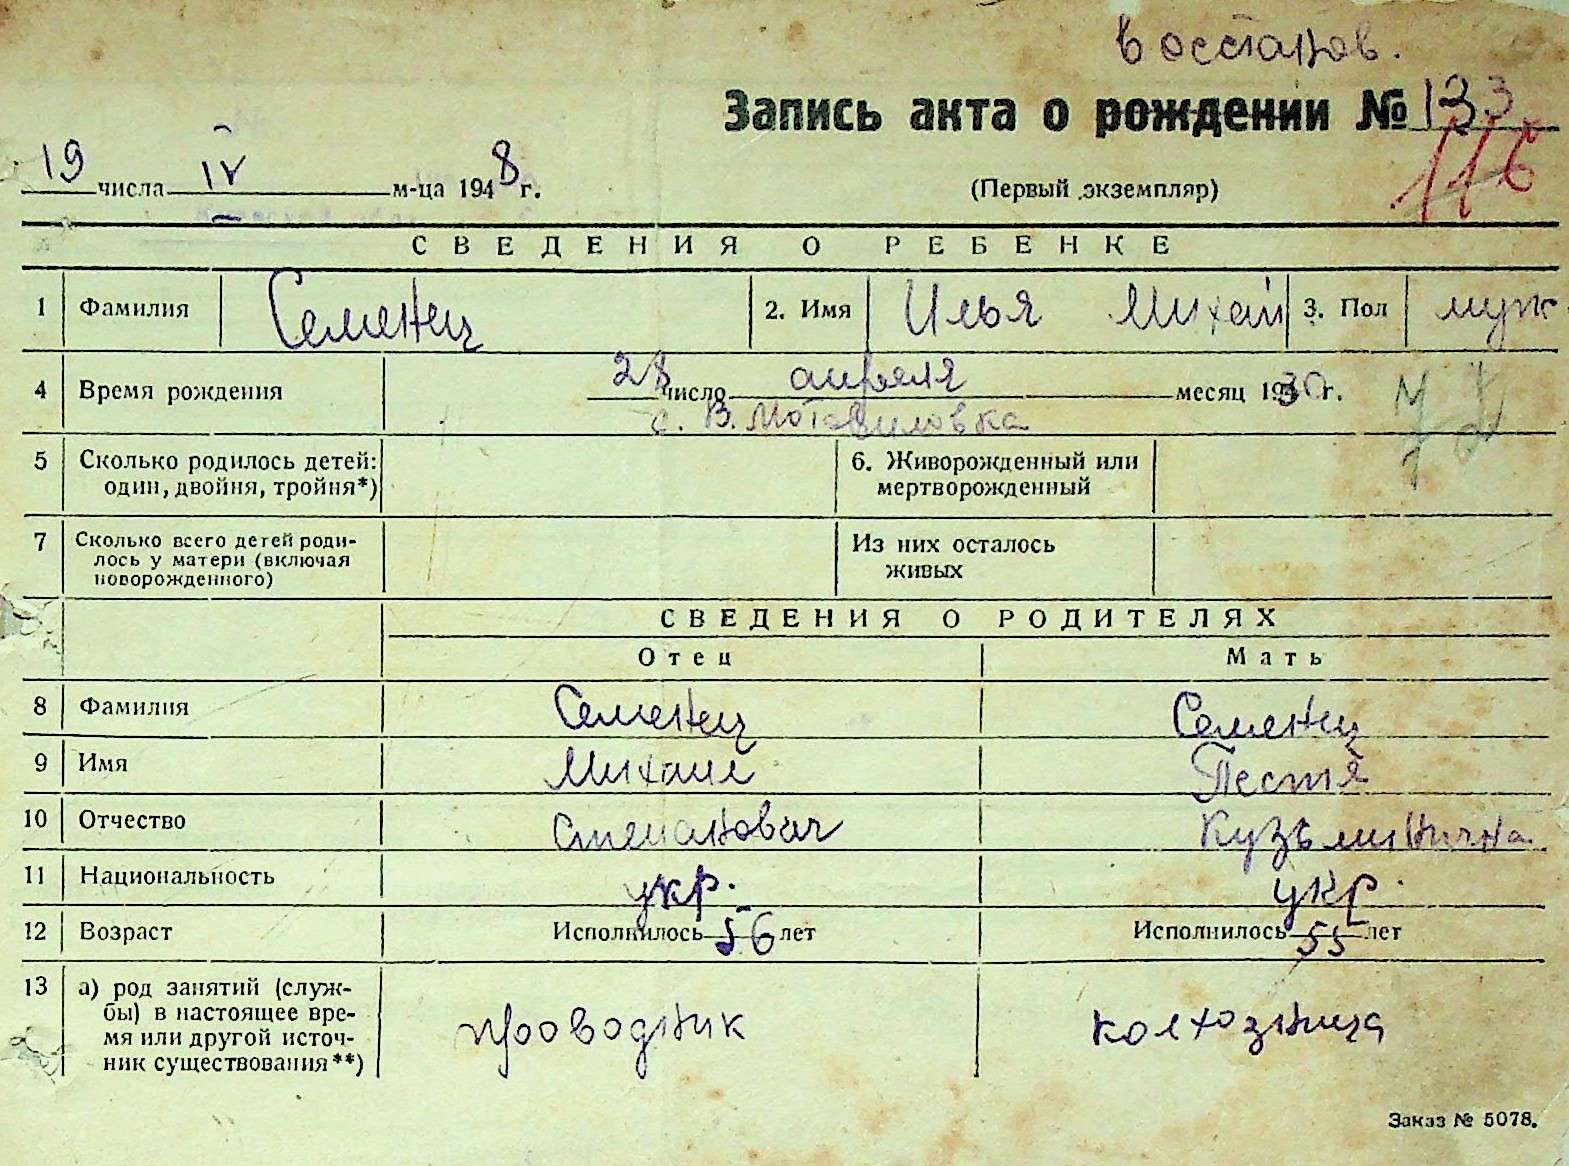 восстанов.
Запись акта о рождении № 133
116
19 числа IV м-ца 1948 г. (Первый экземпляр)
СВЕДЕНИЯ О РЕБЕНКЕ
1 Фамилия Семенец 2. Имя Илья Михайл 3. Пол муж
4 Время рождения 28 число апреля месяц 1930 г.
с. В. Мотовиловка
5 Сколько родилось детей: 6. Живорожденный или
один, двойня, тройня*) мертворожденный
7 Сколько всего детей роди- Из них осталось
лось у матери (включая живых
новорожденного)
СВЕДЕНИЯ О РОДИТЕЛЯХ
Отец Мать
8 Фамилия Семенец Семенец
9 Имя Михаил
10 Отчество Степанович Кузьминична
11 Национальность укр. укр.
12 Возраст Исполнилось 56 лет Исполнилось 55 лет
13 а) род занятий (служ-
бы) в настоящее вре-
мя или другой источ- проводник колхозница
ник существования**)
Заказ № 5078.